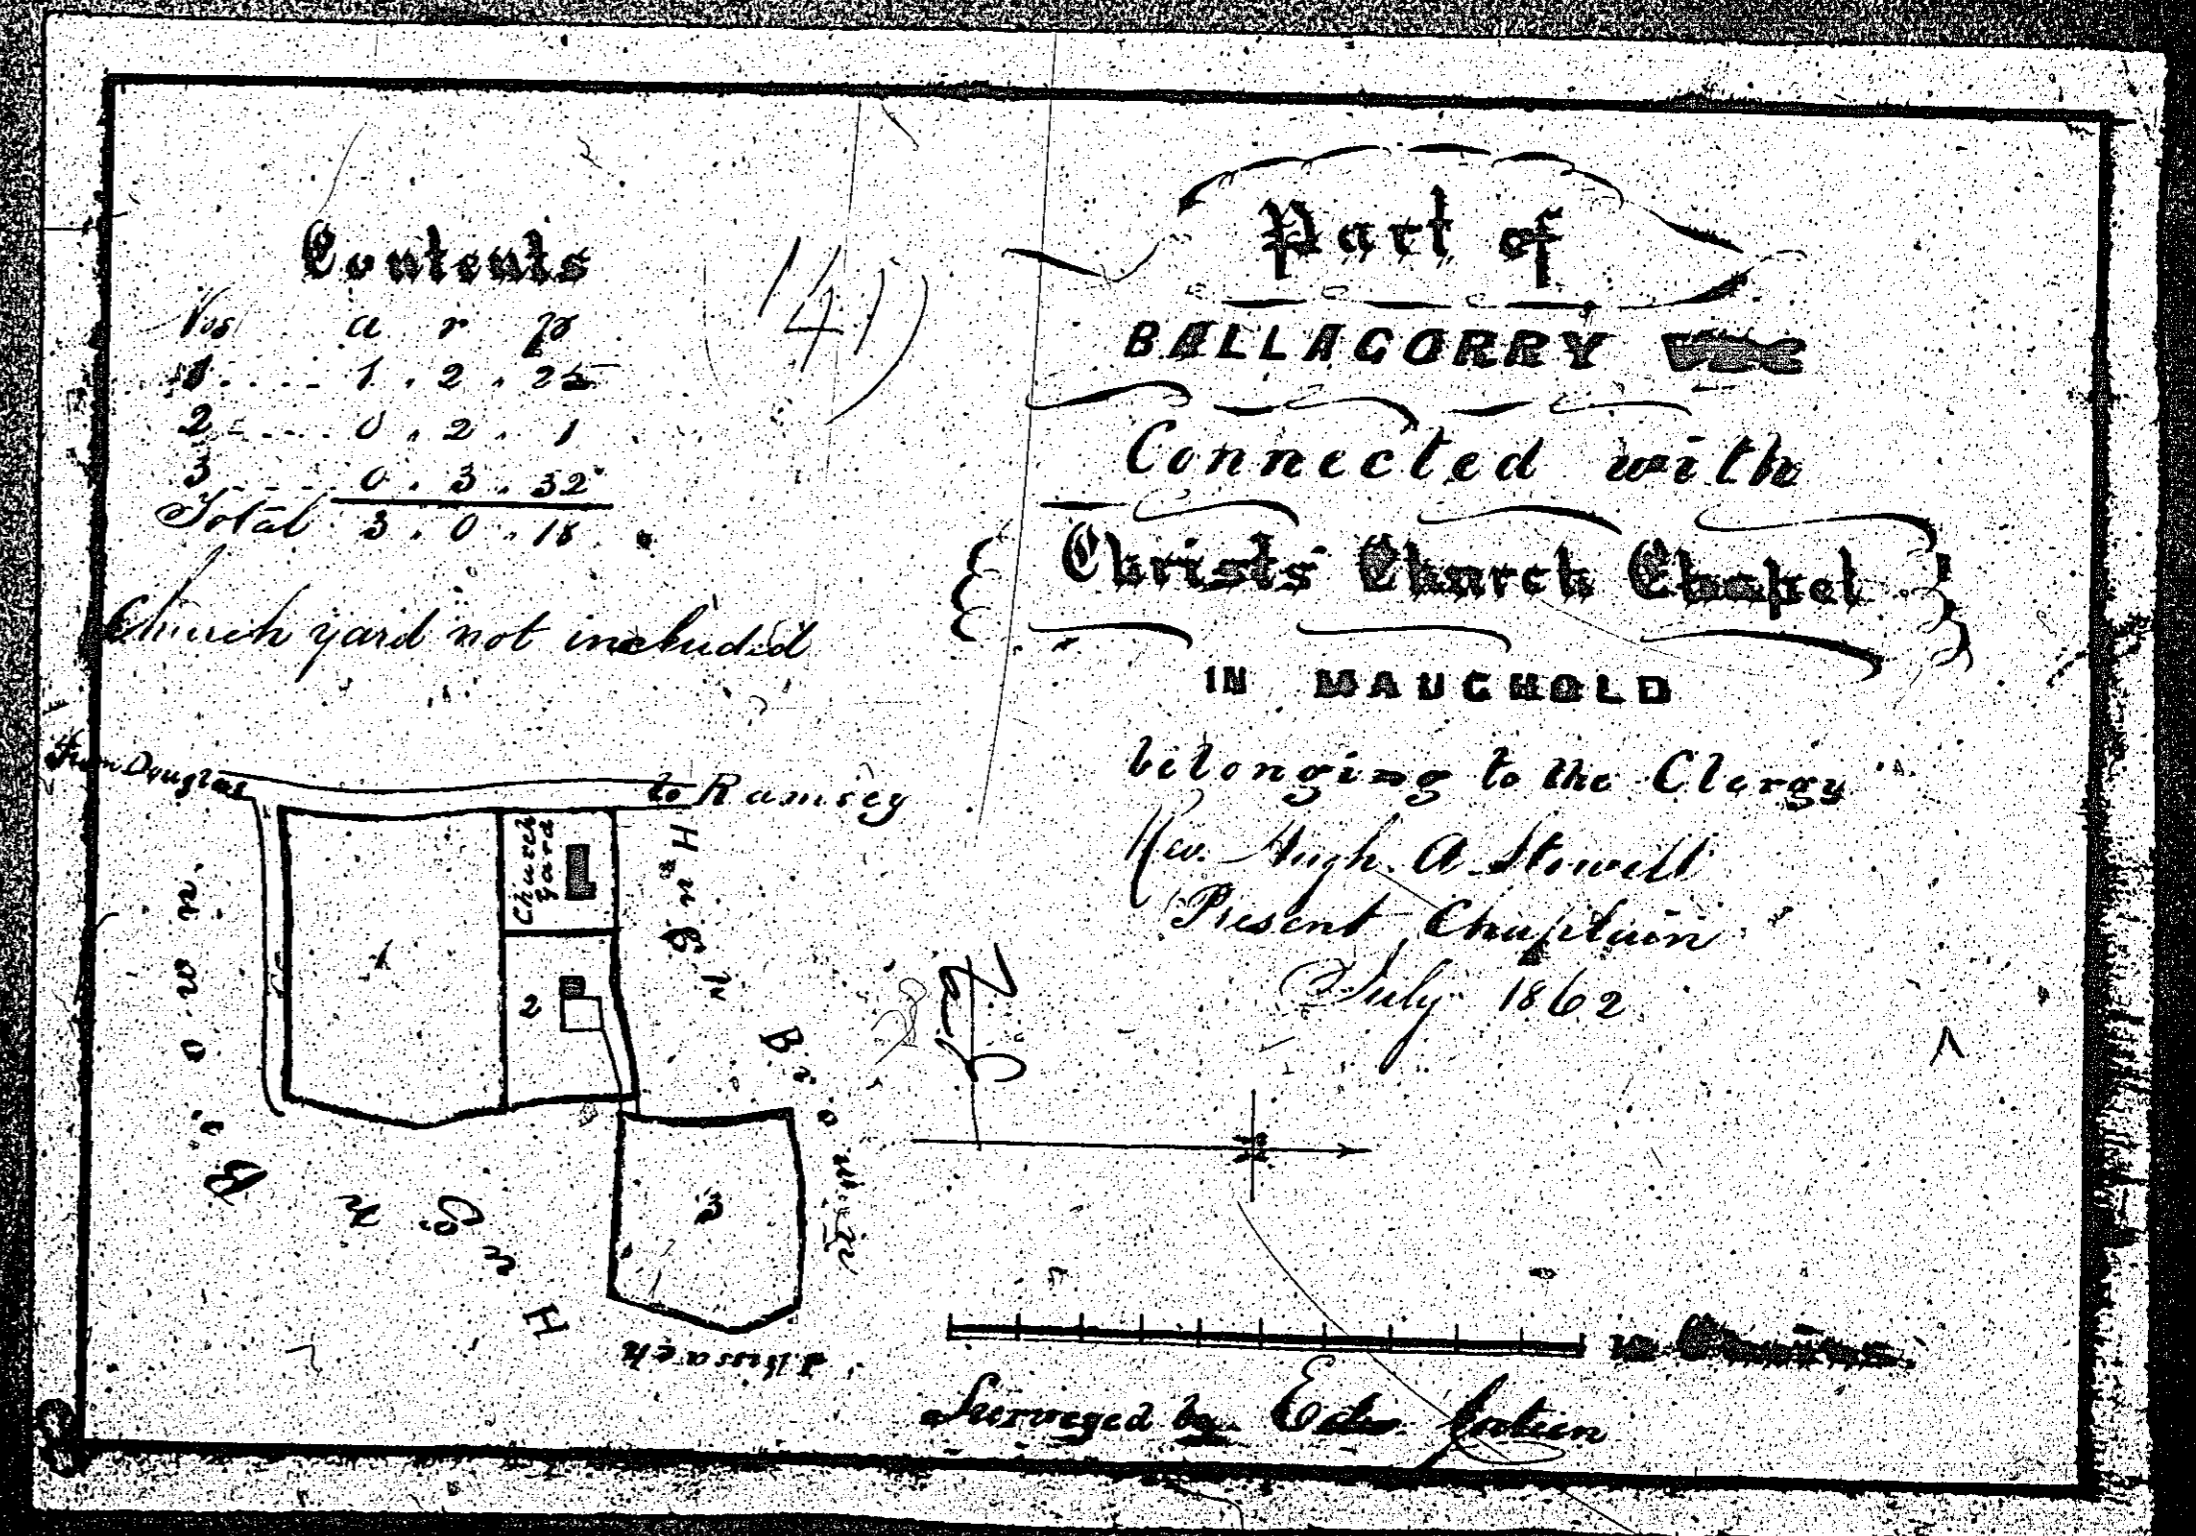 Contents
Nos a r p
1 .... 1 . 2 . 25
2 .... 0 . 2 . 1
3 .... 0 . 3 . 32
Total 3 . 0 . 18
Church yard not included
(141)
Part of
BALLAGORRY
Connected with
Christs Church Chapel
IN MAUGHOLD
belonging to the Clergy
Rev. Hugh A Stowell
Present Chaplain
July 1862
From Douglas
to Ramsey
Church
Yard
1
2
3
Hugh Brown
Hugh Brown
in Chains.
Surveyed by